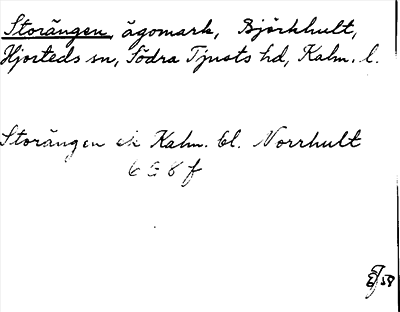 Storängen, ägomark, Björkhult,
Hjorteds sn, Södra Tjusts hd, Kalm. l.
Storängen ek Kalm. bl. Norrhult
6 G 8 f
59